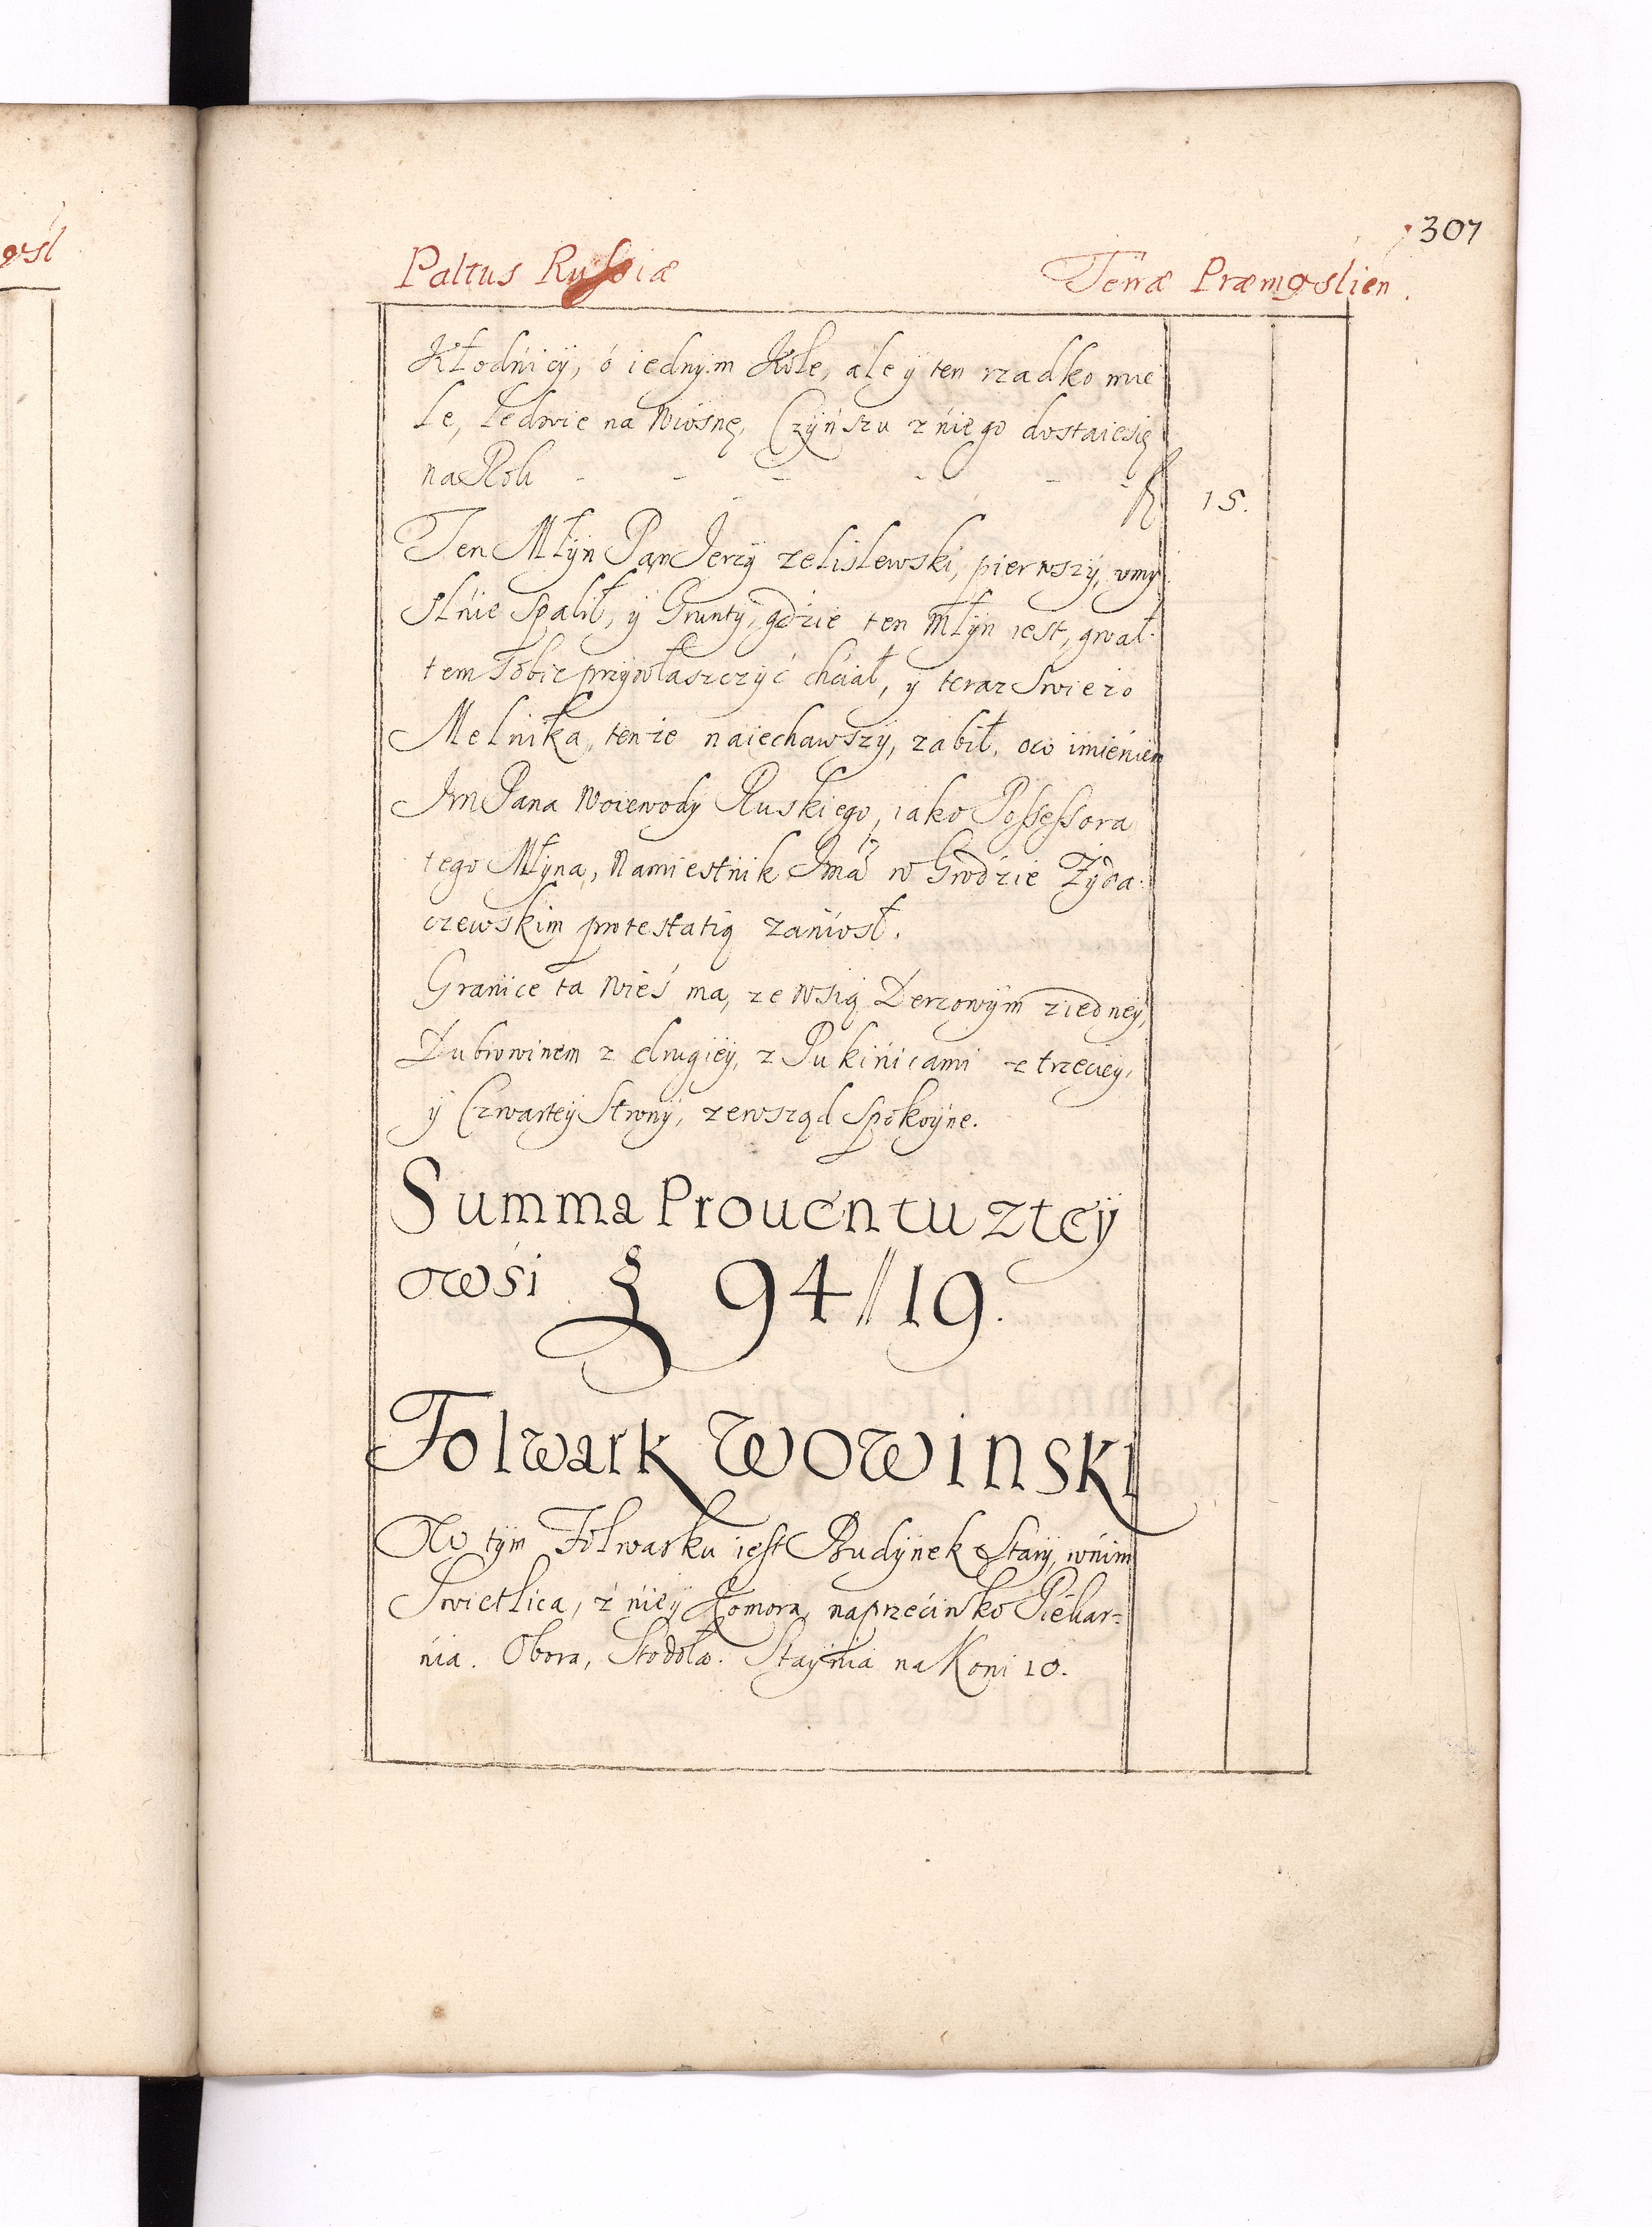 307
Paltus Russiæ Terræ Præmyslien.
Kłodńicy, ó iednym Kole, ale ÿ ten rzadko mie
le, ledwie na Wiosnę, Czÿńszu z ńiego dostaiesię
na Rok - - - - - fl 15.
Ten Młÿn Pan Jerzÿ zelislewski, pierwszÿ, vmy
slńie spalił, ÿ Grunty, gdzie ten Młÿn iest, gwał-
tem sobie przÿwłaszczÿć chciał, ÿ teraz swiezo
Melnika, tenze naiechawszÿ, zabił, ow imieniem
Jm Pana Woiewodÿ Ruskiego, iako Possessora
tego Młÿna, Namiestnik Jmći w Grodzie Żÿda-
czewskim protestatią zaniosł.
Granice ta Wieś ma, ze Wsią Derzowÿm ziedneÿ,
Dubrowinem z drugieÿ, z Pukińicami z trzecieÿ,
ÿ Czwarteÿ stronÿ, zewsząd spokoÿne.
Summa Prouentu zteÿ
wśi fl 94//19.
Folwark Wowinski
W tÿm Folwarku iest Budÿnek starÿ, wńim
Swietlica, z ńieÿ Komora, naprzećiwko Piekar-
ńia. Obora, Stodoła. Staÿnia na Koni 10.
ÿsl